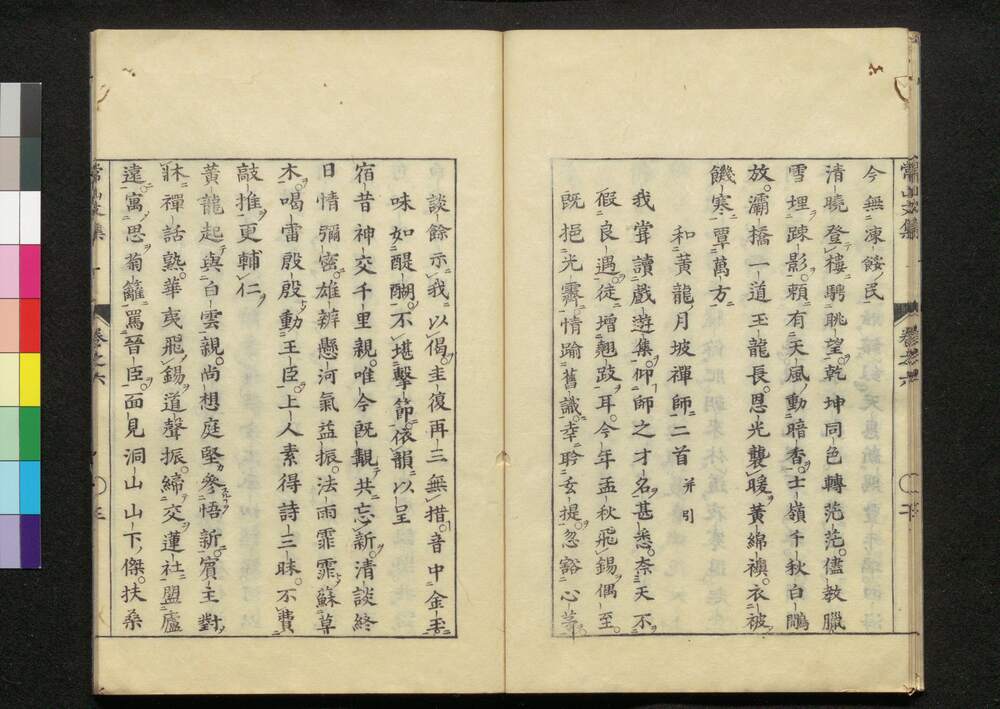 今無凍餒民
清曉登樓騁眺望乾坤同色轉茫茫儘教臘
雪埋踈影賴有天風動暗香士嶺千秋白鵰
放灞橋一道玉龍長恩光襲暖黃綿襖衣被
饑寒覃萬方
和黃龍月坡禪師二首 并引
我嘗讀戲遊集仰師之才名甚悉奈天不
假良遇徒增翹跂耳今年孟秋飛錫偶至
既挹光霽情踰舊識幸聆玄提忽豁心茅
談餘示我以偈圭復再三無措音中金玉
味如醍醐不堪擊節依韻以呈
宿昔神交千里親唯今既覯共忘新清談終
日情彌密雄辨懸河氣益振法雨霏霏蘇草
木喝雷殷殷動王臣上人素得詩三昧不費
敲推更輔仁
黃龍起與白雲親尚想庭堅參悟新賓主對
牀禪話熟華夷飛錫道聲振締交蓮社盟廬
遠寓思菊籬罵晉臣面見洞山山下傑扶桑
常山文集
卷之六
二
常山文集
卷之六
三